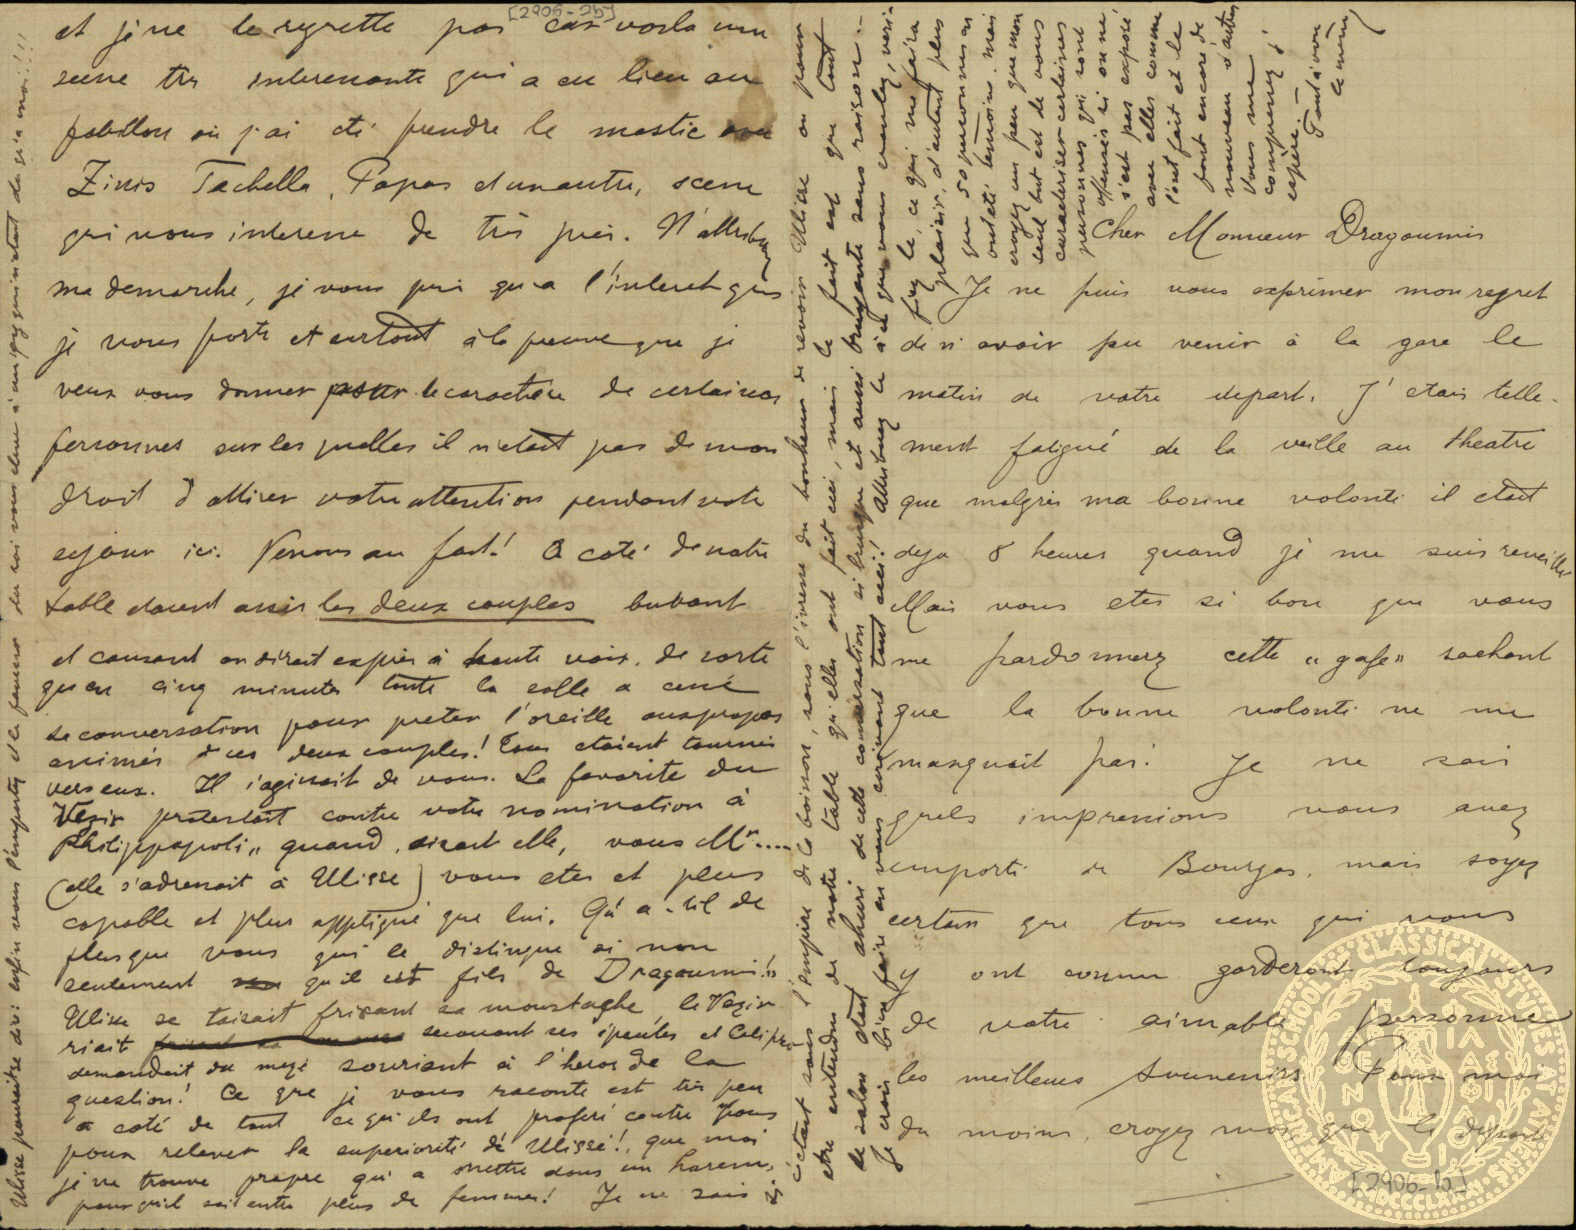 [2906-2b]
et je ne le regrette pas car voila une
scene tres interessante qui a eu lieu au
pabillon où j'ai eté prendre le mastic avec
Zinis Tachella, Papas et un autre, scene
qui vous interesse de très près. N'attribuez
ma demarche, je vous prie qu'a l'interet que
je vous porte et surtout à la preuve que je
veux vous donner pour le caractère de certaines
personnes sur les quelles il n'etait pas de mon
droit d'attirer votre attention pendant votre
sejour ici. Venons au fait! A coté de notre
table etaient assis les deux couples bubant
et causant on dirait exprès à haute voix, de sorte
qu'en cinq minutes toute la salle a cessé
sa conversation pour preter l'oreille aux propos
animés d ces deux couples! Tous etaient tournés
vers eux. Il s'agissait de vous. La favorite du
Vezir protestait contre votre nomination à
Philippopoli „ quand, disait elle, vous Mr....
(elle s'adressait à Ulisse) vous etes et plus
capable et plus appliqué que lui. Qu'a-t-il de
plus que vous qui le distingue si non
seulement qu'il est fils de Dragoumi!„
Ulisse se taisait frisant sa moustache, le Vezir
riait secouant ses épaules et Calipso
demandait du mezé souriant à l'heros de la
question! Ce que je vous raconte est très peu
a coté de tout ce qu'ils ont proferé contre vous
pour relever la superiorité d'Ulisse!, que moi
je ne trouve propre qu'a mettre dans un harem,
pour qu'il soit entre plus de femmes! Je ne sais si
c'etait sous l'empire de la boisson, sous l'ivresse du bonheur de revoir Ulisse ou pour
etre entendus de notre table qu'elles ont fait ceci, mais le fait est que tout
le salon etait ahuri de cette conversation si brusque et aussi bruyante sans raison.-
Je crois bien faire en vous ecrivant tout ceci! Attribuez le à ce que vous voulez, veri-
fiez le, ce qui me faira
plaisir, d'autant plus
que 50 personnes en
ont eté temoins. Mais
croyez un peu que mon
seul but est de vous
caracteriser certaines
personnes qui sont
offensés si on ne
s'est pas exposé
avec elles comme
l'ont fait et le
font encore de
nouveau d'autres
Vous me
comprenez j'
espère.
Tout à vous
le même
Ulisse pour vous l'emporter et le pauvre du roi vous
Cher Monsieur Dragoumis
Je ne puis vous exprimer mon regret
de n'avoir pu venir à la gare le
matin de votre depart. J'etais telle-
ment fatigué de la veille au theatre
que malgrès ma bonne volonté il etait
deja 8 heures quand je me suis reveillé
Mais vous etes si bon que vous
me pardonnerez cette „gafe" sachant
que la bonne volonté ne me
manquait pas. Je ne sais
quels impressions vous avez
emporté de Bourgas, mais soyez
certain que tous ceux qui vous
y ont connu garderont toujours
de votre aimable personne
les meilleurs souvenirs. Pour moi
du moins, croyez moi que le depart
[2906-2b]
AMERICAN SCHOOL OF CLASSICAL STUDIES AT ATHENS
MDCCCLXXXI